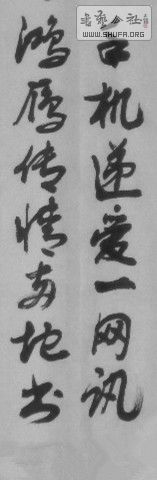 書藝公社
WWW.SHUFA.ORG
机递爱一网讯
鸿雁传情两地书